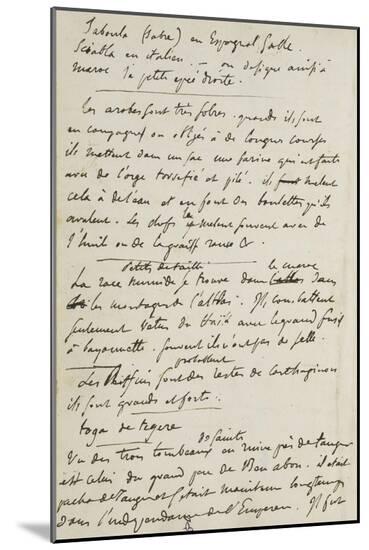 Saboula (Sabre) en Espagnol Sable
Sciabla en italien. — on désigne ainsi à
maroc la petite épée droite.
les arabes sont très sobres. quand ils sont
en campagne ou obligés à de longues courses
ils mettent dans un sac une farine qui est faite
avec de l'orge torréfié et pilé. ils melent
cela à de l'eau et en font des boulettes qu'ils
avalent. Les chefs le melent souvent avec de
l'huile ou de la graisse
Petits de taille
le maroc
La race se trouve dans dans
les montagnes de l'atlas. Ils combattent
seulement vetus du Haïk avec le grand fusil
à bayonnette. souvent ils n'ont pas de selle.
probablement
Les Riffins sont des restes de carthaginois
ils sont grands et forts.
toga de
de Saints
Vu des trois tombeaux en ruine près de tanger
est celui du grand père de Ben abou. il était
pacha de tanger et s'était maintenu longtemps
dans l'indépendance de l'Empereur. Il fut